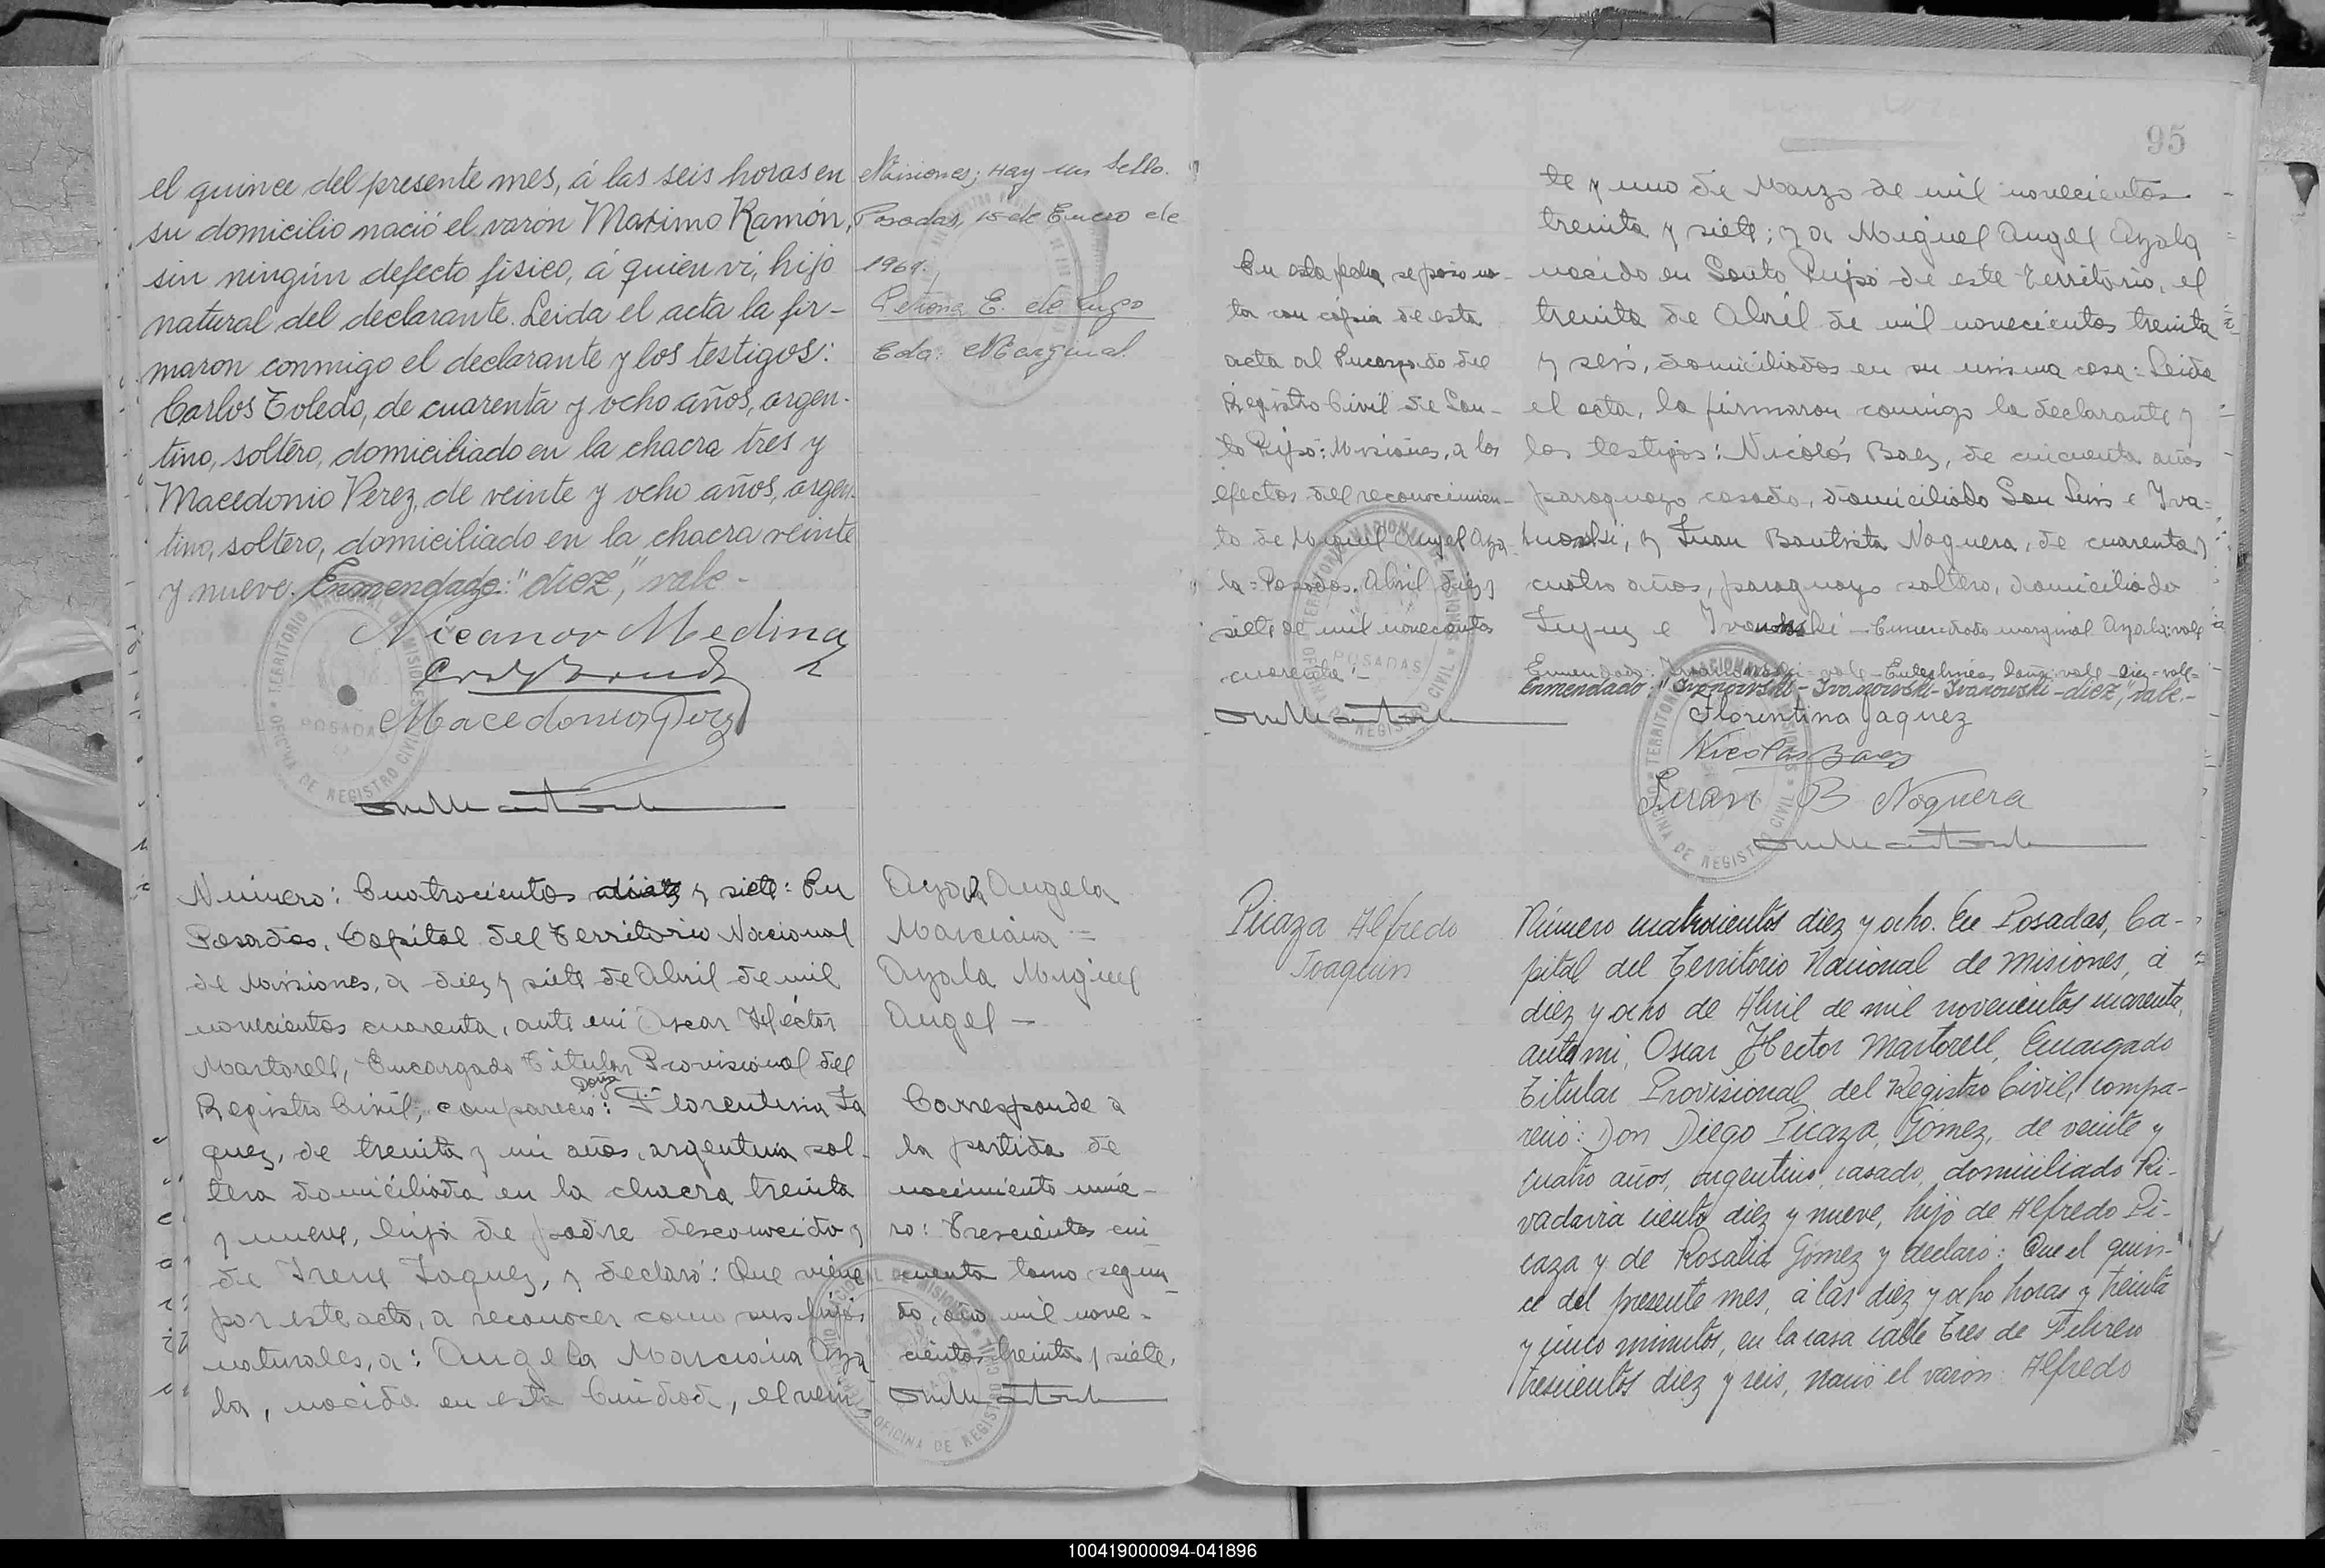 el quince del presente mes, á las seis horas en
su domicilio nació el varón Maximo Ramón,
sin ningún defecto fisico, á quien vi, hijo
natural del declarante. Leida el acta la fir-
maron conmigo el declarante y los testigos:
Carlos Toledo, de cuarenta y ocho años, argen-
tino, soltero, domiciliado en la chacra tres y
Macedonio Perez, de veinte y ocho años, argen-
tino, soltero, domiciliado en la chacra veinte
y nueve. Enmendado: "diez", vale-
Nicanor Medina
Macedonio Perez
Misiones; Hay un Sello.
Posadas, 15 de Enero de
1969.
Petrona E. de Lugo
Eda: Marginal.
TERRITORIO NACIONAL DE MISIONES
POSADAS
OFICINA DE REGISTRO CIVIL
Número: Cuatrocientos diez y siete: En
Posadas, Capital del Territorio Nacional
de Misiones, a diez y siete de Abril de mil
novecientos cuarenta, ante mi Oscar Héctor
Martorell, Encargado Titular Provisional del
Registro Civil; compareció: Doña Florentina Ja
quez, de treinta y un años, argentina sol-
tera domiciliada en la chacra treinta
y nueve, hija de padre desconocido y
de Irene Jaquez, y declaró: Que viene
por este acto, a reconocer como sus hijos
naturales, a: Angela Marciana Aya
la, nacida en esta Ciudad, el vein
Ayala Angela
Marciana =
Ayala Miguel
Angel -
Corresponde a
la partida de
nacimiento núme-
ro: Trescientos cin
cuenta tomo segun
do, año mil nove-
cientos treinta y siete.
OFICINA DE REGISTRO CIVIL
95
te y uno de Marzo de mil novecientos
treinta y siete; y a Miguel Angel Ayala
nacido en Santo Pipó de este Territorio, el
treinta de Abril de mil novecientos treinta
y seis, domiciliados en su misma casa: Leida
el acta, la firmaron conmigo la declarante y
los testigos: Nicolás Baez, de cincuenta años
paraguayo casado, domiciliado San Luis e Iva=
nowski, y Juan Bautista Noguera, de cuarenta y
cuatro años, paraguayo soltero, domiciliado
Jujuy e Ivanowski - Enmendado marginal Ayala: vale
Enmendado: Ivanowski = vale - Entrelíneas Doña: vale - diez = vale=
Enmendado: "Ivanowski - Ivanowski - Ivanowski - diez", vale.-
Florentina Jaquez
Nicolas Baez
Juan B Noguera
En esta fecha se paso no-
ta con cópia de esta
acta al Encargado del
Registro Civil de San-
to Pipó: Misiones, a los
efectos del reconocimien-
to de Miguel Angel Aya-
la = Posadas, Abril diez y
siete de mil novecientos
cuarenta.-
TERRITORIO NACIONAL DE MISIONES
POSADAS
OFICINA DE REGISTRO CIVIL
Picaza Alfredo
Joaquin
Número cuatrocientos diez y ocho. En Posadas, Ca-
pital del Territorio Nacional de Misiones, á
diez y ocho de Abril de mil novecientos cuarenta,
ante mi, Oscar Hector Martorell, Encargado
Titular Provisional del Registro Civil, compa-
reció: Don Diego Picaza, Gómez, de veinte y
cuatro años, argentino, casado, domiciliado Ri-
vadavia ciento diez y nueve, hijo de Alfredo Pi-
caza y de Rosalia Gómez y declaró: Que el quin-
ce del presente mes, á las diez y ocho horas y treinta
y cinco minutos, en la casa calle Tres de Febrero
trescientos diez y seis, nació el varón: Alfredo
100419000094-041896